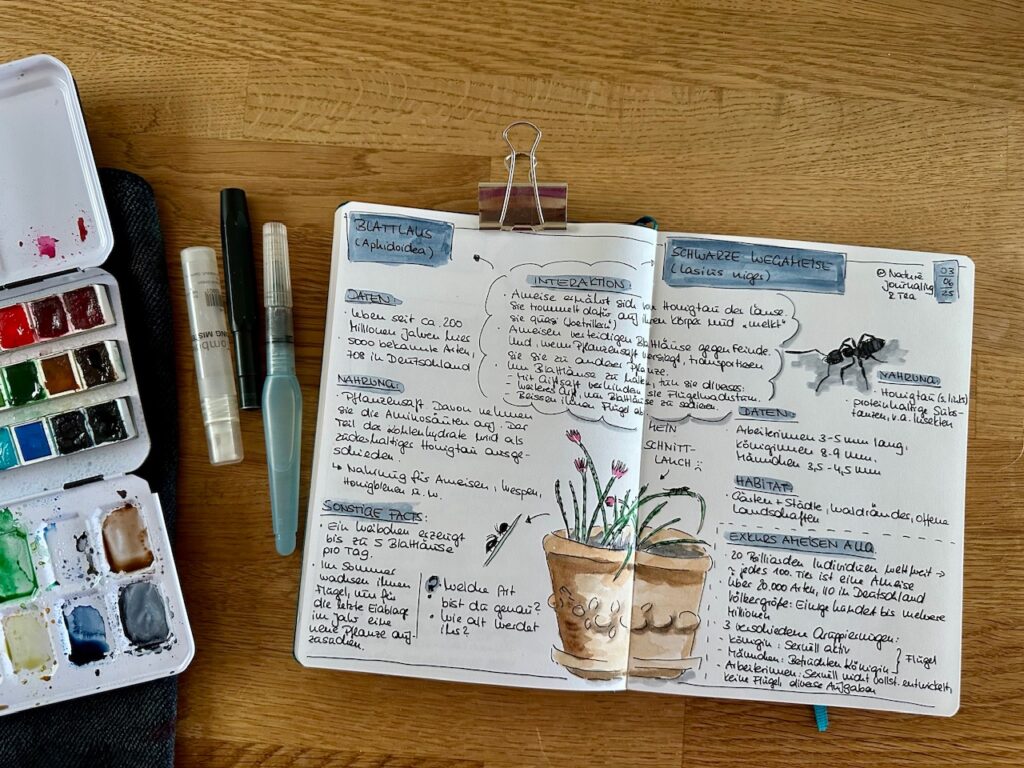 BLATTLAUS
(Aphidoidea)
DATEN:
· leben seit ca. 200
Millionen Jahren hier
· 5000 bekannte Arten,
708 in Deutschland
NAHRUNG:
· Pflanzensaft. Davon nehmen
sie die Aminosäuten auf. Der
Teil der Kohlenhydrate wird als
zuckerhaltiger Honigtau ausge-
schieden.
↳ Nahrung für Ameisen, Wespen,
Honigbienen u.w.
SONSTIGE FACTS:
· Ein Weibchen erzeugt
bis zu 5 Blattläuse
pro Tag.
· Im Sommer
wachsen ihnen
Flügel, um für
die letzte Eiablage
im Jahr eine
neue Pflanze auf-
zusuchen.
· Welche Art
bist du genau?
· Wie alt werdet
ihr?
INTERAKTION:
· Ameise ernährt sich vom Honigtau der Läuse.
Sie trommelt dafür auf ihren Körper und "melkt"
sie quasi (betrillern)
· Ameisen verteidigen Blattläuse gegen Feinde.
und, wenn Pflanzensaft versiegt, transportieren
sie sie zu anderer Pflanze.
· Um Blattläuse zu halten, tun sie diverses:
- Mit Giftsaft verhindern sie Flügelwachstum.
- weiteres Gift, um Blattläuse zu sedieren
- Beissen ihnen Flügel ab
MEIN
SCHNITT-
LAUCH :
SCHWARZE WEGAMEISE
(Lasius niger)
Nature
Journaling
& Tea
03
06
25
NAHRUNG:
Honigtau (s. links)
proteinhaltige Subs-
tanzen, v.a. Insekten
DATEN:
Arbeiterinnen 3-5 mm lang,
Königinnen 8-9 mm,
Männchen 3,5-4,5 mm
HABITAT:
Gärten + Städte, Waldränder, offene
Landschaften
EXKURS AMEISEN ALLG.
· 20 Billiarden Individuen weltweit →
~ jedes 100. Tier ist eine Ameise
· Über 20.000 Arten, 110 in Deutschland
· Völkergröße: Einige hundert bis mehrere
Millionen
· 3 verschiedene Gruppierungen:
- Königin: Sexuell aktiv
- Männchen: Befruchten Königin } Flügel
- Arbeiterinnen: Sexuell nicht vollst. entwickelt,
keine Flügel, diverse Aufgaben